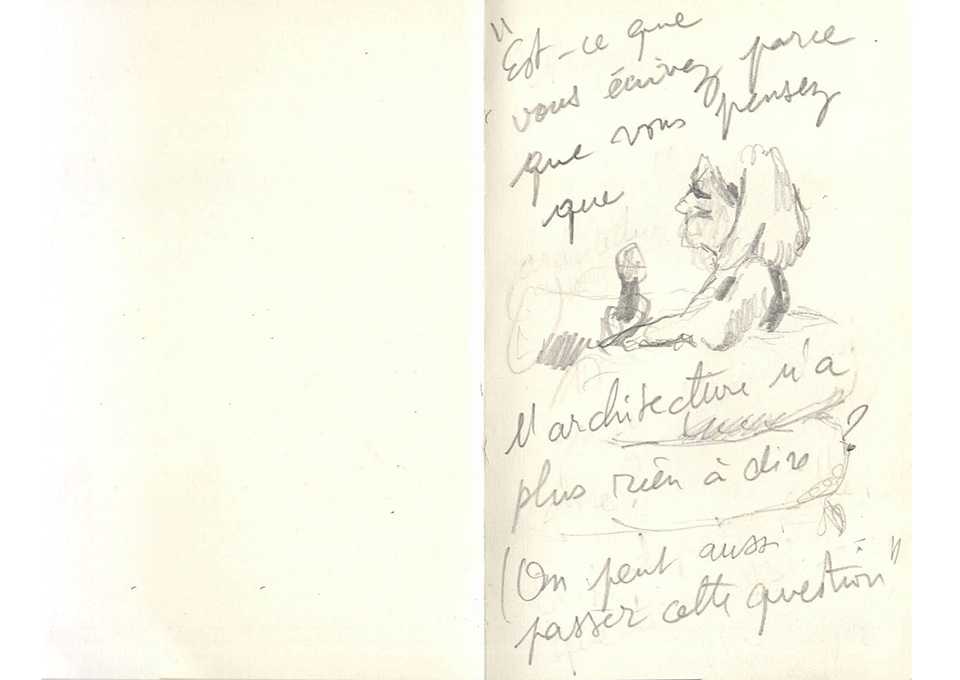 "Est-ce que
vous écrivez parce
que vous pensez
que
l'architecture n'a
plus rien à dire ?
(On peut aussi
passer cette question"